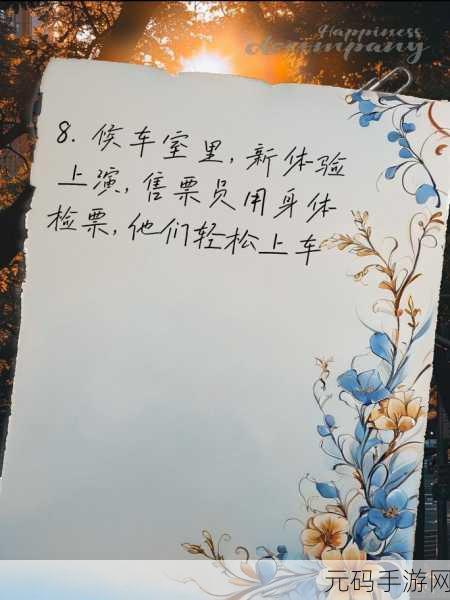 Happiness
Accompany
8. 候车室里, 新体验
上演, 售票员用身体
检票, 他们轻松上车
元码手游网